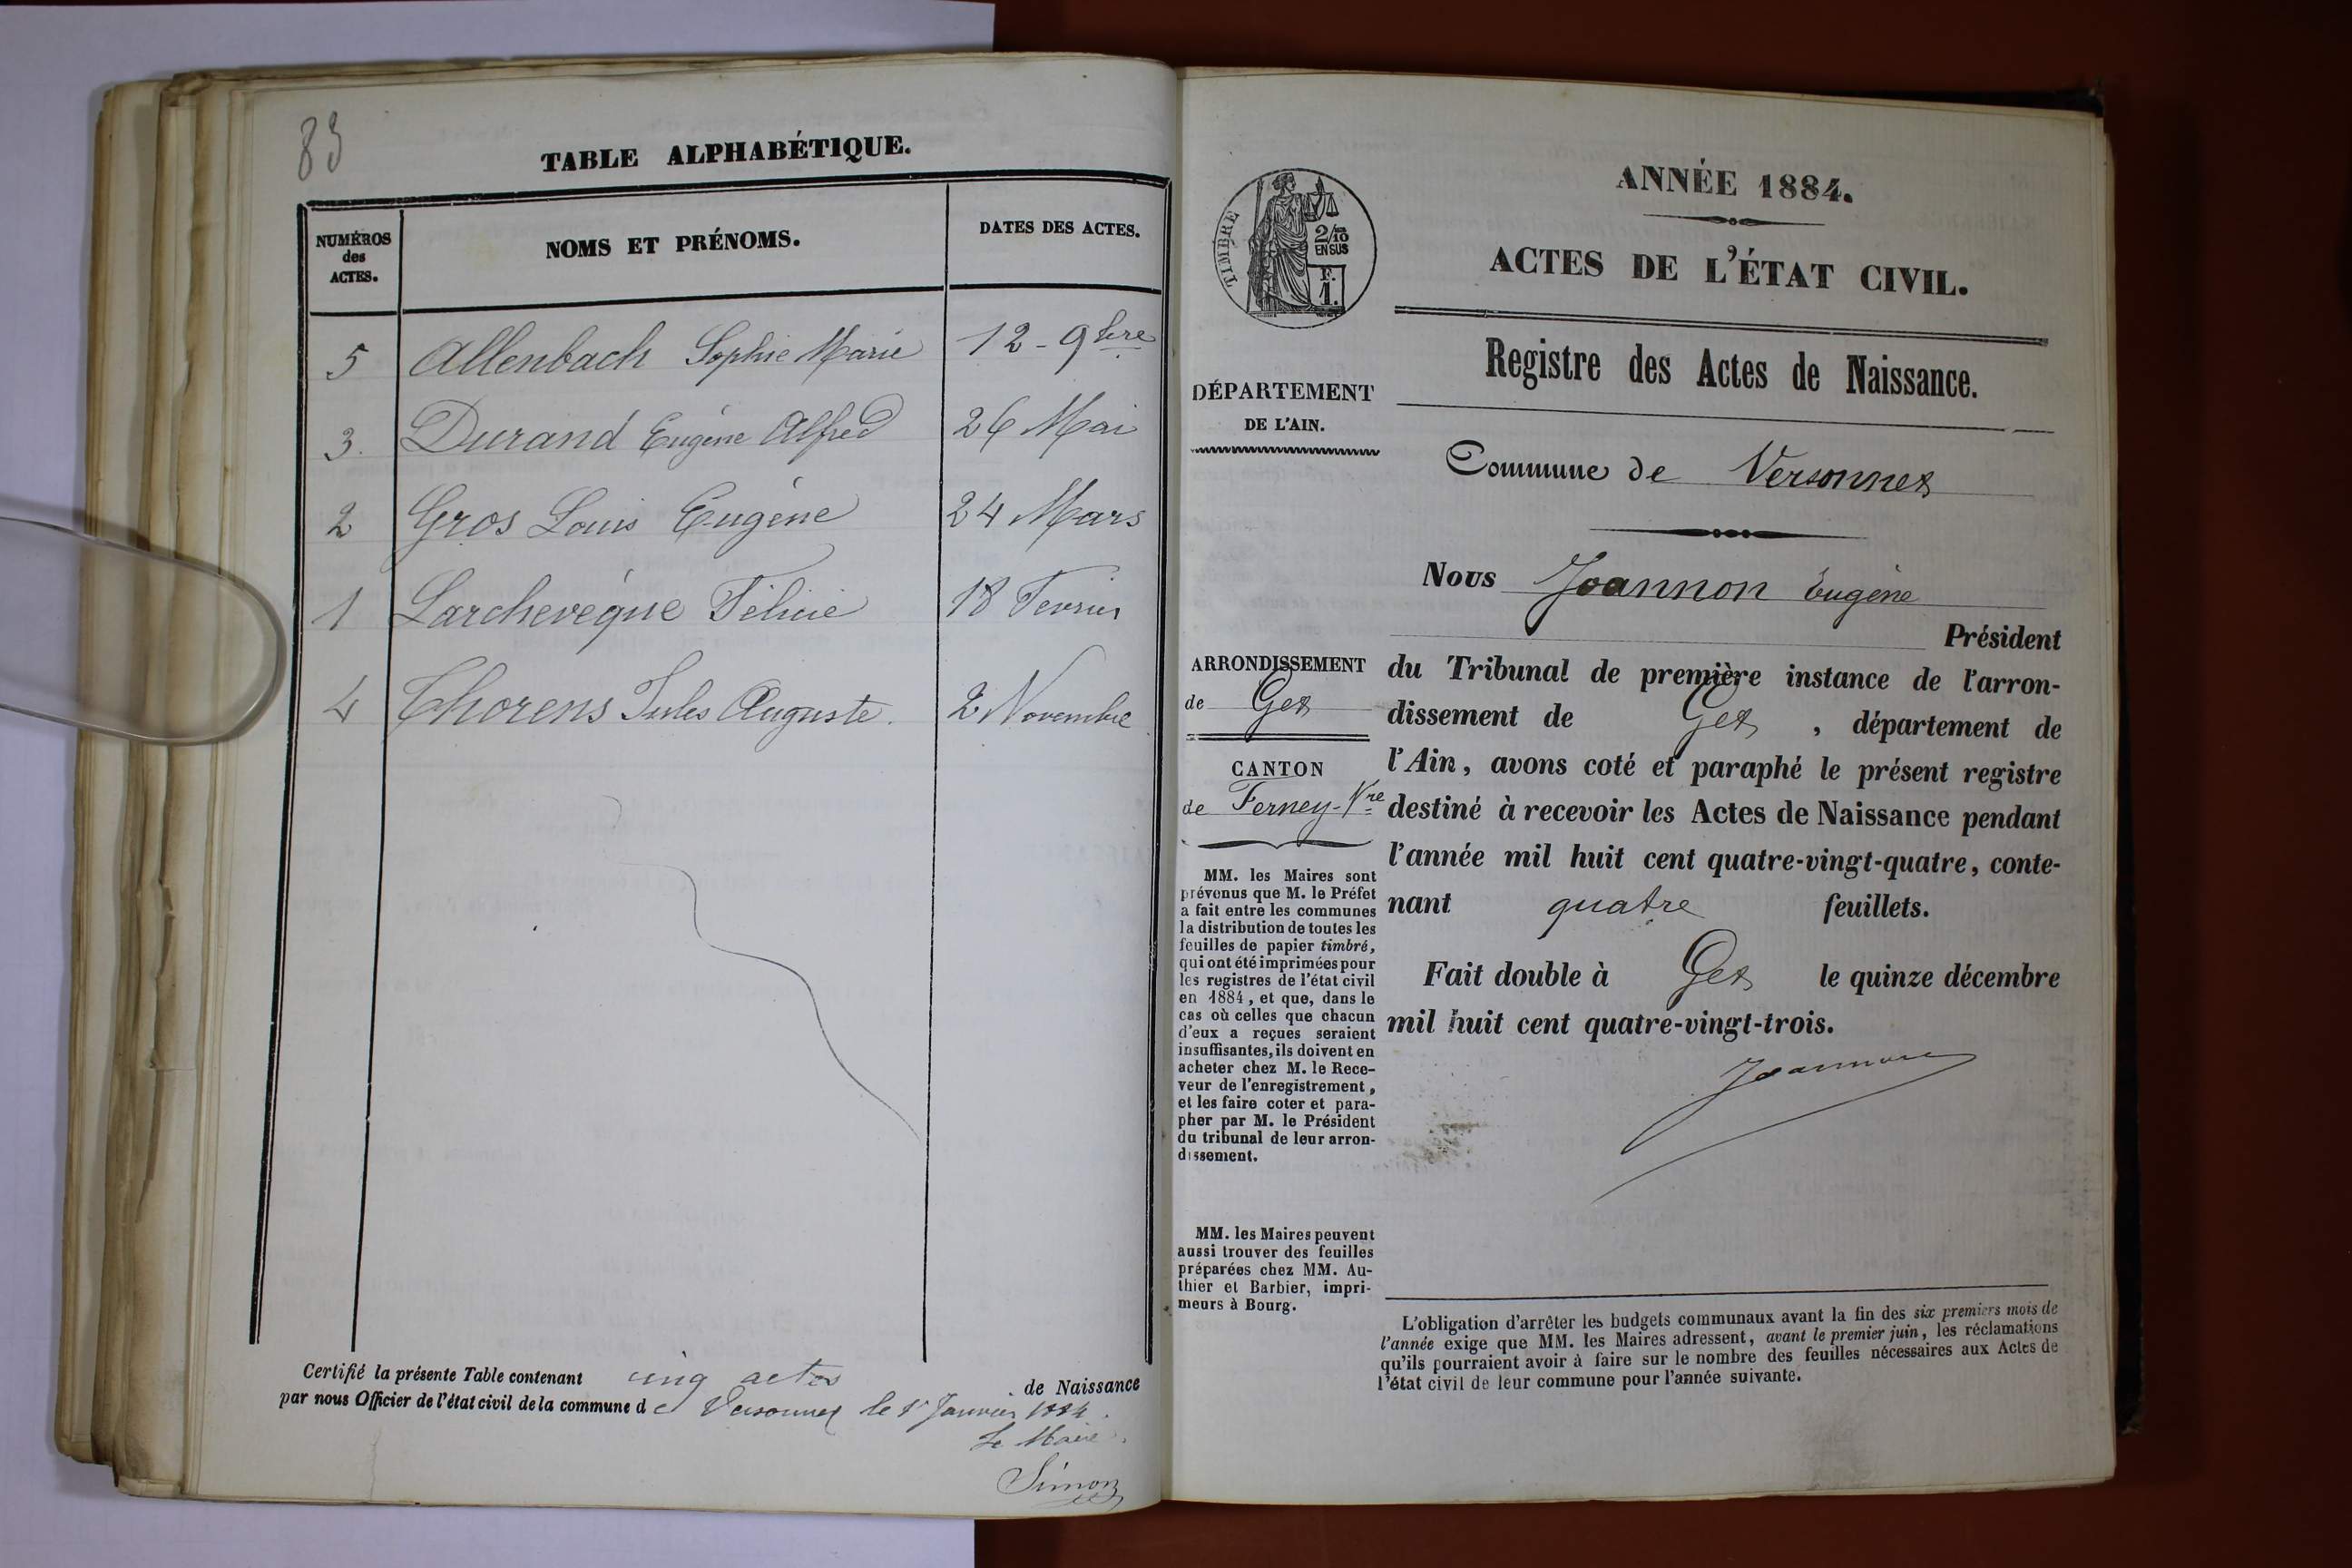 83
TABLE ALPHABÉTIQUE.
NUMÉROS
des
ACTES.
NOMS ET PRÉNOMS.
DATES DES ACTES.
5 Allenbach Sophie Marie 12 - 9bre
3. Durand Eugène Alfred 26 Mai
2 Gros Louis Eugène 24 Mars
1 Larchevêque Félicie 18 Fevrier
4 Thorens Jules Auguste. 2 Novembre
Certifié la présente Table contenant cinq actes de Naissance
par nous Officier de l'état civil de la commune de Versonnex le 1er Janvier 1884.
Le Maire.
Simon
TIMBRE
2/10
EN SUS
F.
1.
ANNÉE 1884.
ACTES DE L'ÉTAT CIVIL.
Registre des Actes de Naissance.
DÉPARTEMENT
DE L'AIN.
Commune de Versonnex
Nous Joannon Eugène
Président
ARRONDISSEMENT
de Gex
CANTON
de Ferney-Vre
du Tribunal de première instance de l'arron-
dissement de Gex, département de
l'Ain, avons coté et paraphé le présent registre
destiné à recevoir les Actes de Naissance pendant
l'année mil huit cent quatre-vingt-quatre, conte-
nant quatre feuillets.
Fait double à Gex le quinze décembre
mil huit cent quatre-vingt-trois.
Joannon
MM. les Maires sont
prévenus que M. le Préfet
a fait entre les communes
la distribution de toutes les
feuilles de papier timbré,
qui ont été imprimées pour
les registres de l'état civil
en 1884, et que, dans le
cas où celles que chacun
d'eux a reçues seraient
insuffisantes, ils doivent en
acheter chez M. le Rece-
veur de l'enregistrement,
et les faire coter et para-
pher par M. le Président
du tribunal de leur arron-
dissement.
MM. les Maires peuvent
aussi trouver des feuilles
préparées chez MM. Au-
thier et Barbier, impri-
meurs à Bourg.
L'obligation d'arrêter les budgets communaux avant la fin des six premiers mois de
l'année exige que MM. les Maires adressent, avant le premier juin, les réclamations
qu'ils pourraient avoir à faire sur le nombre des feuilles nécessaires aux Actes de
l'état civil de leur commune pour l'année suivante.